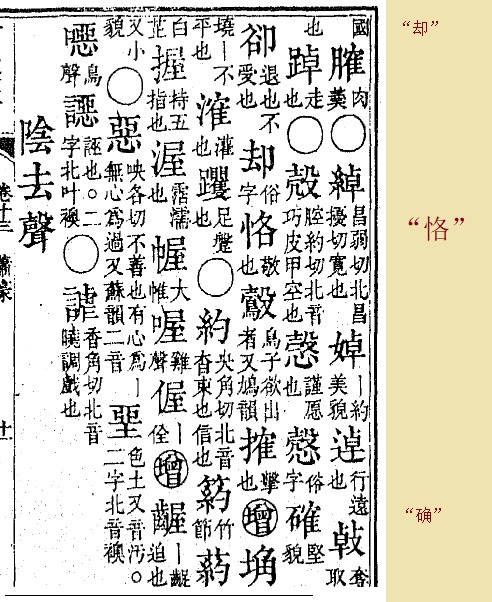 膗肉羹○綽昌弱切北昌擾切寬也婥—約美貌逴行遠也奪取
也踔走也○殼腔約切北音巧皮甲空也愨謹愿也慤俗字確堅貌
卻退也不受也却俗字恪敬也鷇鳥子欲出者又鳩韻搉擊也增埆
墝—不平也灌也躩足盤也○約央角切北音杳束也信也竹節药
白芷握持五指也渥霑濡也幄大帷喔雞聲偓—佺增齷—齪迫也
又小貌○惡央各切不善也有心爲—無心爲過又蘇韻二音堊色土又音汚。二字北音襖
噁鳥聲也。二字北叶襖○謔香角切北音曉調戲也
陰去聲
卷十三 蕭豪 十一
“却”
“恪”
“确”